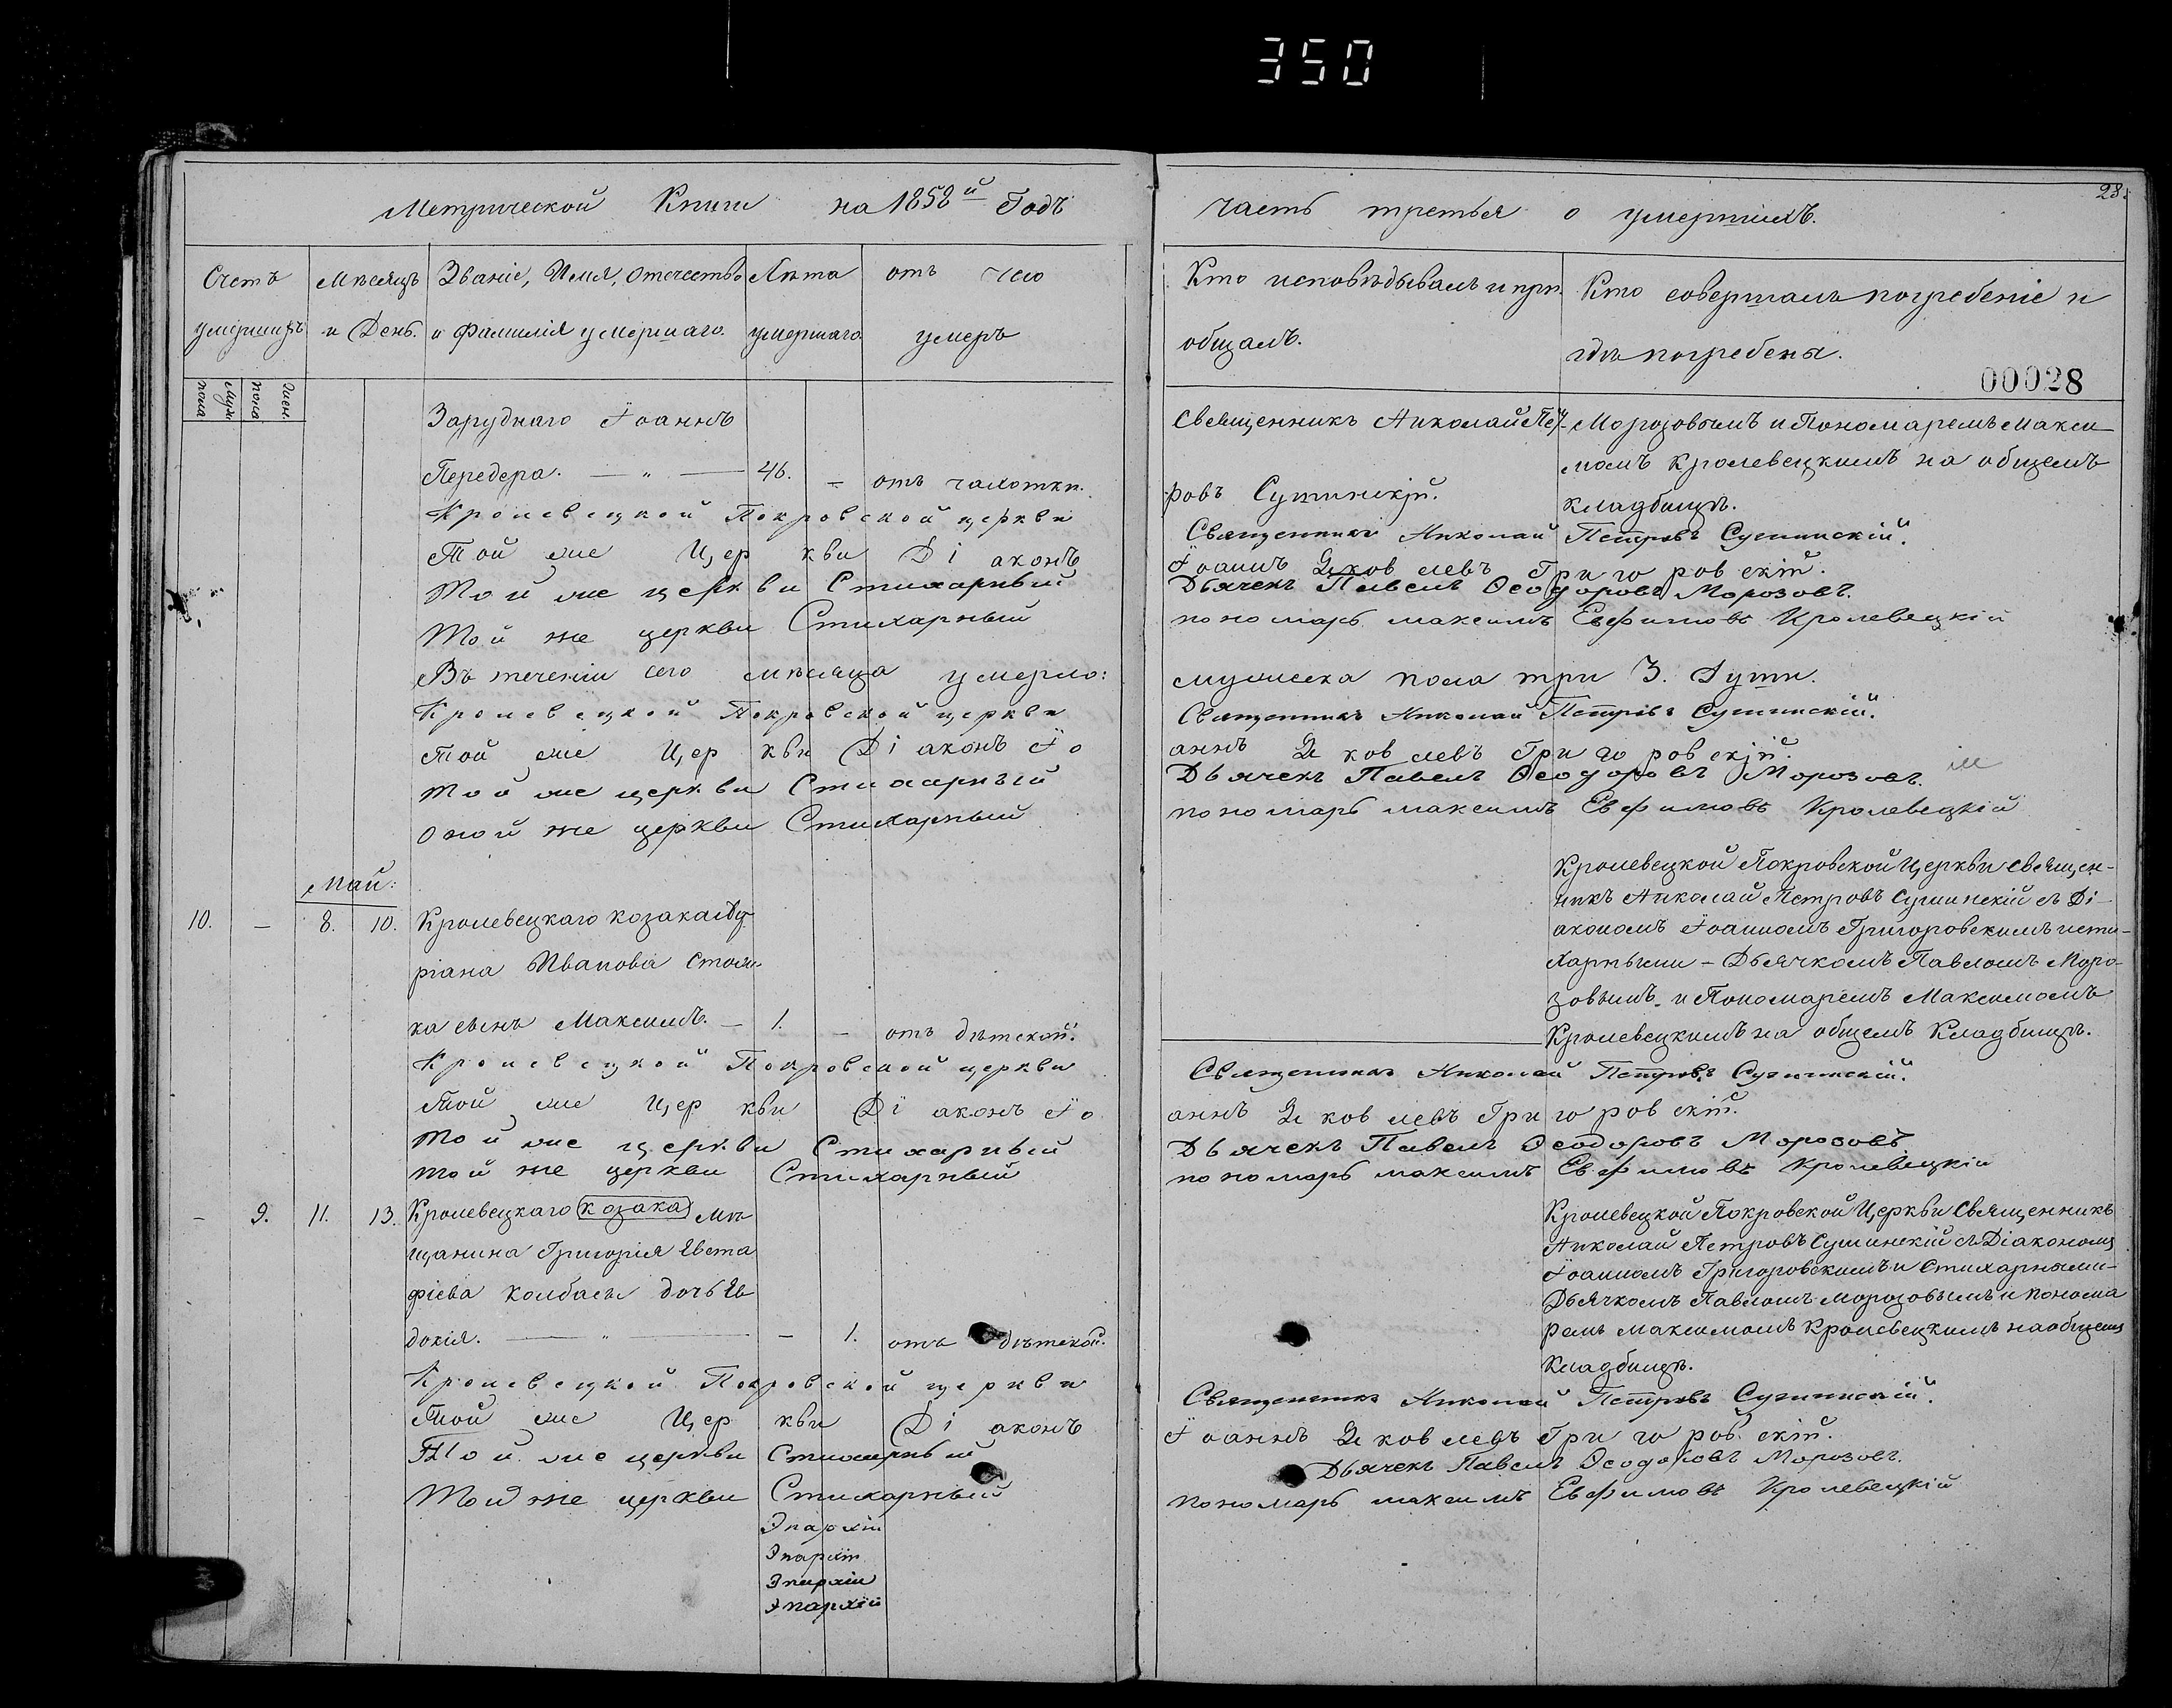 350
28.
Метрической Книги на 1858й Годъ
часть третья о умершихъ.
Счетъ умершихъ
Мѣсяцъ и День.
Званіе, Имя, Отчество и Фамилія умершаго.
Лѣта умершаго.
отъ чего умеръ
Кто исповѣдывалъ и пріобщалъ.
Кто совершалъ погребеніе и гдѣ погребены.
Муж. пола
Жен. пола
00028
Заруднаго Іоаннъ
Передера. — „ — 46. – отъ чахотки.
Священникъ Николай Пет-
ровъ Сушинскій.
Морозовымъ и Пономаремъ Макси
момъ Кролевецкимъ на общемъ
кладбищѣ.
Кролевецкой Покровской церкви Священникъ Николай Петровъ Сушинскій.
Той же Церкви Діаконъ Іоаннъ Яковлевъ Григоровскій.
Той же церкви Стихарный Дьячекъ Павелъ Ѳеодоровъ Морозовъ.
Той же церкви Стихарный пономарь Максимъ Евфимовъ Кролевецкій
Въ теченіи сего мѣсяца умерло: мужеска пола три 3. Души.
Кролевецкой Покровской церкви Священникъ Николай Петровъ Сушинскій.
Той же Церкви Діаконъ Іоаннъ Яковлевъ Григоровскій.
Той же церкви Стихарный Дьячекъ Павелъ Ѳеодоровъ Морозовъ.
оной же церкви Стихарный пономарь Максимъ Евфимовъ Кролевецкій
Май:
10. – 8. 10. Кролевецкаго козака
ріана Иванова Стоя-
ка сынъ Максимъ. – 1. – отъ дѣтской.
Кролевецкой Покровской Церкви Священ-
никъ Николай Петровъ Сушинскій съ Ді-
акономъ Іоанномъ Григоровскимъ и сти-
харными – Дьячкомъ Павломъ Моро-
зовымъ и Пономаремъ Максимомъ
Кролевецкимъ на общемъ Кладбищѣ.
Кролевецкой Покровской церкви Священникъ Николай Петровъ Сушинскій.
Той же Церкви Діаконъ Іоаннъ Яковлевъ Григоровскій.
Той же церкви Стихарный Дьячекъ Павелъ Ѳеодоровъ Морозовъ
той же церкви Стихарный пономарь Максимъ Евфимовъ Кролевецкій
– 9. 11. 13. Кролевецкаго козака Мѣ
щанина Григорія Евста
фіева Колбасы дочь Ев
докія. — „ — – 1. отъ дѣтской.
Кролевецкой Покровской Церкви Священникъ
Николай Петровъ Сушинскій съ Діакономъ
Іоанномъ Григоровскимъ и Стихарными –
Дьячкомъ Павломъ Морозовымъ и понома
ремъ Максимомъ Кролевецкимъ на общемъ
Кладбищѣ.
Кролевецкой Покровской церкви Священникъ Николай Петровъ Сушинскій.
Той же Церкви Діаконъ Іоаннъ Яковлевъ Григоровскій.
Той же церкви Стихарный Дьячекъ Павелъ Ѳеодоровъ Морозовъ.
Той же церкви Стихарный пономарь Максимъ Евфимовъ Кролевецкій
Эпархіи
Эпархіи
Эпархіи
Эпархіи